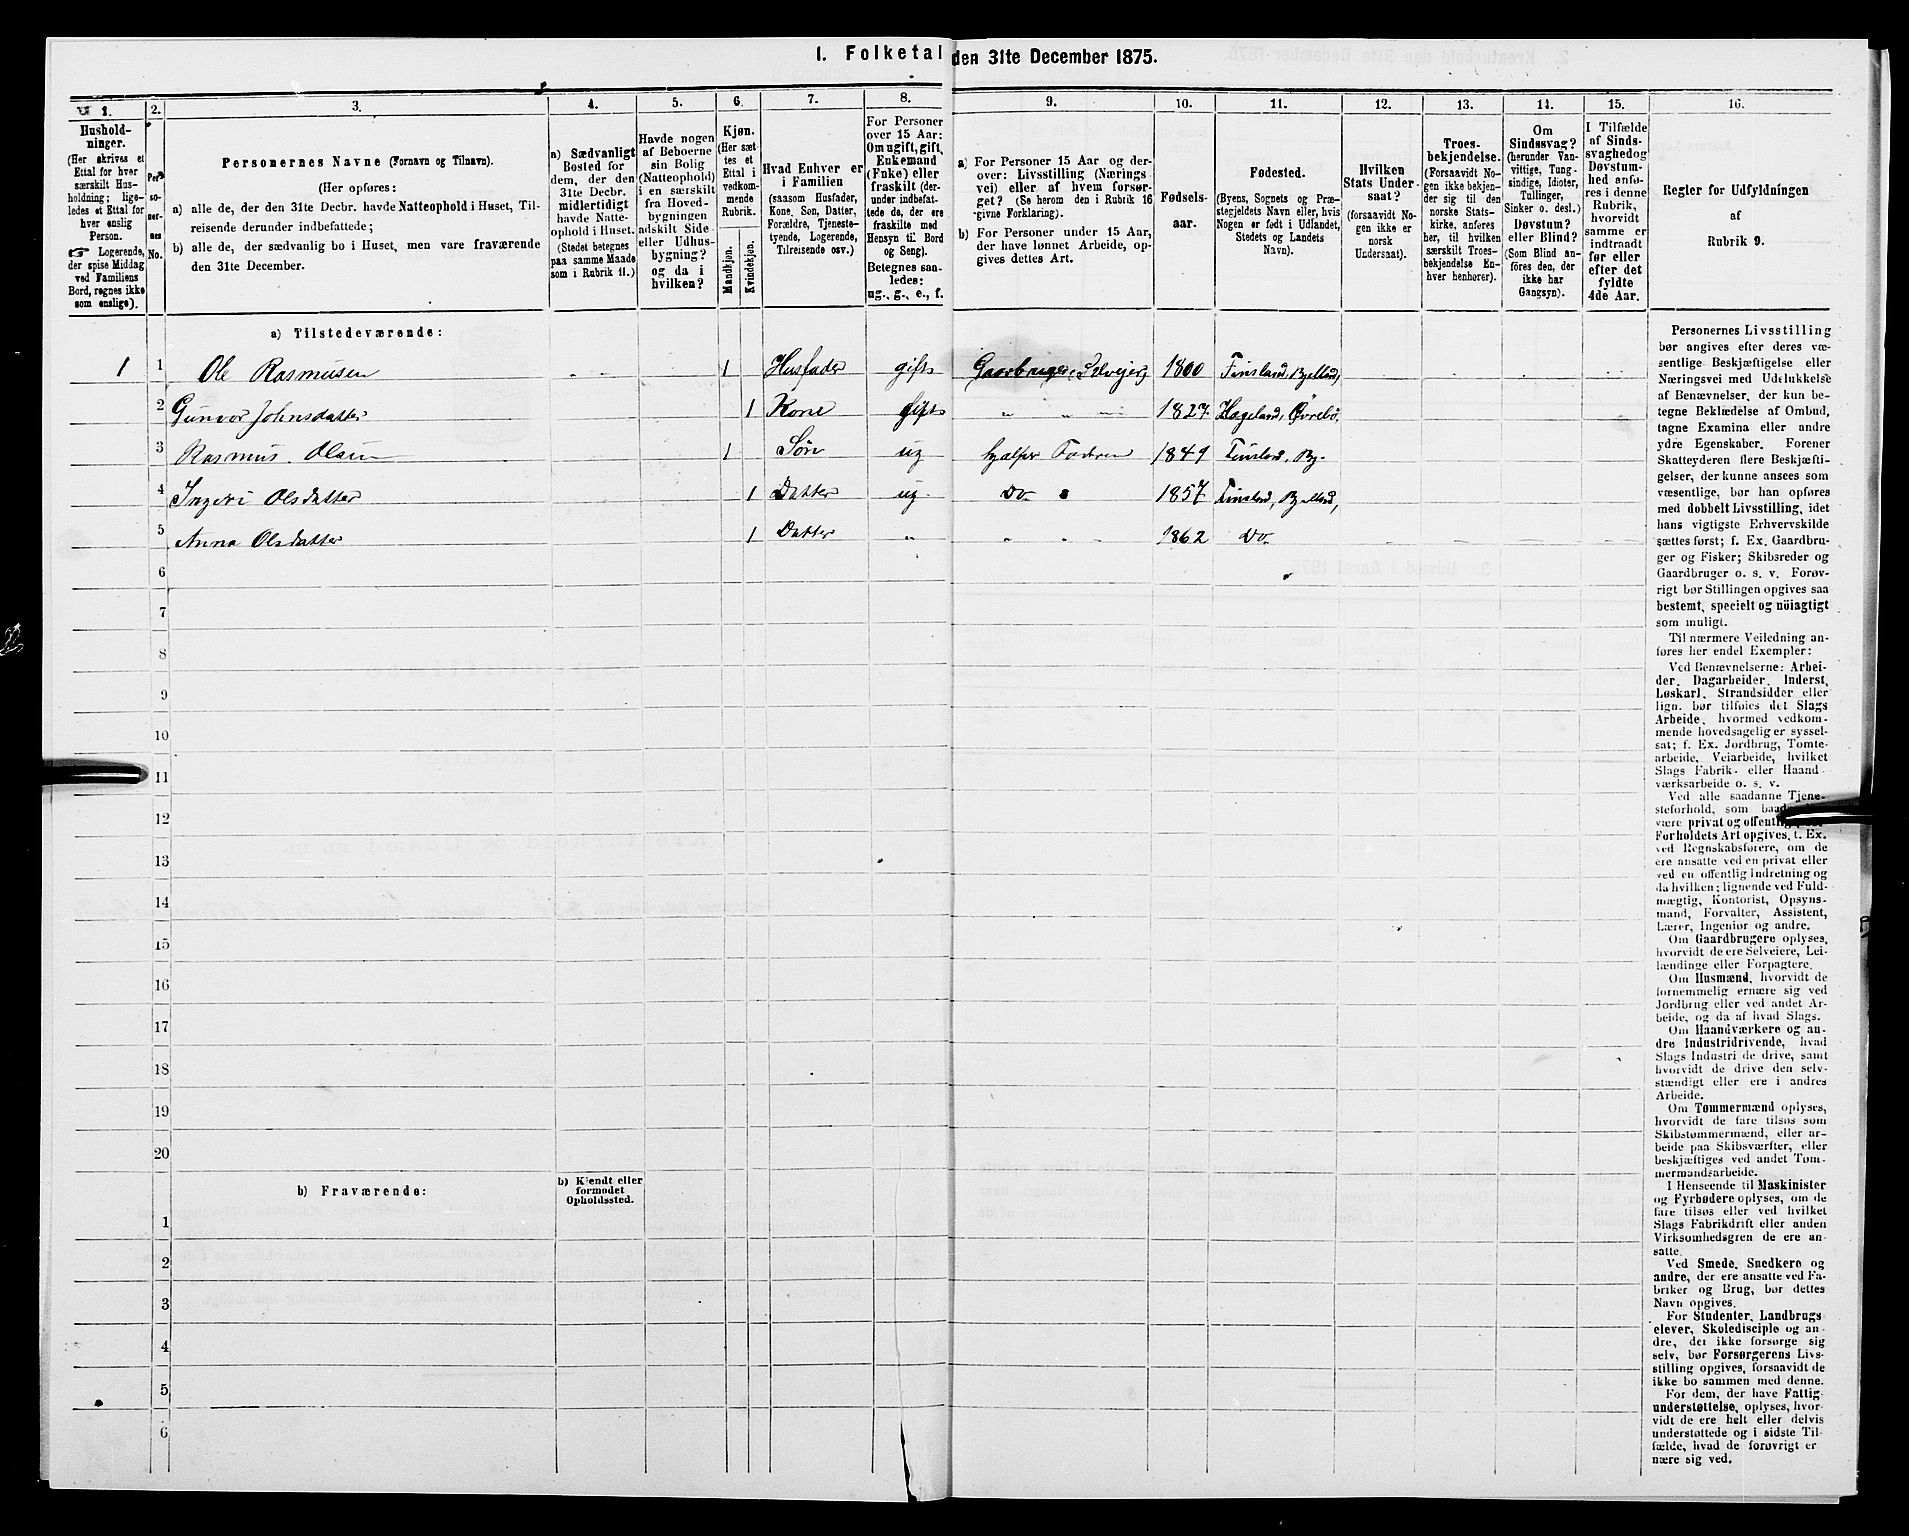 1. Folketal den 31te December 1875.
1. 2. 3. 4. 5. 6. 7. 8. 9. 10. 11. 12. 13. 14. 15. 16.
Hushold-
ninger.
(Her skrives et
Ettal for hver
særskilt Hus-
holdning; lige-
ledes et Ettal for
hver enslig
Person.
Logerende,
der spise Middag
ved Familiens
Bord, regnes ikke
som enslige).
Per-
so-
ner-
nes
No.
Personernes Navne (Fornavn og Tilnavn).
(Her opføres:
a) alle de, der den 31te Decbr. havde Natteophold i Huset, Til-
reisende derunder indbefattede;
b) alle de, der sædvanlig bo i Huset, men vare fraværende
den 31te December.
a) Sædvanligt
Bosted for
dem, der den
31te Decbr.
midlertidigt
havde Natte-
ophold i Huset.
(Stedet betegnes
paa samme Maade
som i Rubrik 11.)
Havde nogen
af Beboerne
sin Bolig
(Natteophold)
i en særskilt
fra Hoved-
bygningen
adskilt Side-
eller Udhus-
bygning?
og da i
hvilken?
Kjøn.
(Her sæt-
tes et
Ettal i
vedkom-
mende
Rubrik.
Mandkjøn.
Kvindekjøn.
Hvad Enhver er
i Familien
(saasom Husfader,
Kone, Søn, Datter,
Forældre, Tjeneste-
tyende, Logerende,
Tilreisende osv.)
For Personer
over 15 Aar:
Om ugift, gift,
Enkemand
(Enke) eller
fraskilt (der-
under indbefat-
tede de, der ere
fraskilte med
Hensyn til Bord
og Seng).
Betegnes saa-
ledes:
ug., g., e., f.
a) For Personer 15 Aar og der-
over: Livsstilling (Nærings
vei) eller af hvem forsør-
get? (Se herom den i Rubrik 16
givne Forklaring).
b) For Personer under 15 Aar,
der have lønnet Arbeide, op-
gives dettes Art.
Fødsels-
aar.
Fødested.
(Byens, Sognets og Præ-
stegjeldets Navn eller, hvis
Nogen er født i Udlandet,
Stedets og Landets
Navn).
Hvilken
Stats Under-
saat?
(forsaavidt No-
gen ikke er
norsk
Undersaat).
Troes-
bekjendelse.
(Forsaavidt No-
gen ikke bekjen-
der sig til den
norske Stats-
kirke, anføres
her, til hvilken
særskilt Troes-
bekjendelse En-
hver henhører).
Om
Sindssvag?
(herunder Van-
vittige, Tung-
sindige, Idioter,
Tullinger,
Sinker o. desl.)
Døvstum?
eller Blind?
(Som Blind an-
føres den, der
ikke har
Gangsyn).
I Tilfælde
af Sinds-
svaghed og
Døvstum-
hed anfø-
res i denne
Rubrik,
hvorvidt
samme er
indtraadt
før eller
efter det
fyldte
4de Aar.
Regler for Udfyldningen
af
Rubrik 9.
a) Tilstedeværende:
1 1 Ole Rasmusen 1 Husfader gift Gaardbruger, Selvejer, 1800 Finsland, Bjelland,
2 Gunvor Johnsdatter 1 Kone gift " " " 1827 Hægeland, Øvrebø,
3 Rasmus Olsen 1 Søn ug hjælper Faderen 1849 Finsland, Bj-
4 Ingeri Olsdatter 1 Datter ug. Do 1857 Finsland, Bjelland,
5 Anna Olsdatter 1 Datter " " " " 1862 Do
6
7
8
9
10
11
12
13
14
15
16
17
18
19
20
b) Fraværende:
b) Kjendt eller
formodet
Opholdssted.
1
2
3
4
5
6
Personernes Livsstilling
bør angives efter deres væ-
sentlige Beskjæftigelse eller
Næringsvei med Udelukkelse
af Benævnelser, der kun be-
tegne Beklædelse af Ombud,
tagne Examina eller andre
ydre Egenskaber. Forener
Skatteyderen flere Beskjæfti-
gelser, der kunne ansees som
væsentlige, bør han opføres
med dobbelt Livsstilling, idet
hans vigtigste Erhvervskilde
sættes først; f. Ex. Gaardbru-
ger og Fisker; Skibsreder og
Gaardbruger o. s. v. Forøv-
rigt bør Stillingen opgives saa
bestemt, specielt og nöiagtigt
som muligt.
Til nærmere Veiledning an-
føres her endel Exempler:
Ved Benævnelserne: Arbei-
der, Dagarbeider, Inderst,
Løskarl, Strandsidder eller
lign. bør tilføies det Slags
Arbeide, hvormed vedkom-
mende hovedsagelig er syssel-
sat; f. Ex. Jordbrug, Tomte-
arbeide, Veiarbeide, hvilket
Slags Fabrik- eller Haand-
værksarbeide o. s. v.
Ved alle saadanne Tjene-
steforhold, som
være privat og
Forholdets Art opgives, t. Ex.
ved Regnskabsførere, om de
ere ansatte ved en privat eller
ved en offentlig Indretning og
da hvilken; lignende ved Fuld-
mægtig, Kontorist, Opsyns-
mand, Forvalter, Assistent,
Lærer, Ingeniør og andre.
Om Gaardbrugere oplyses,
hvorvidt de ere Selveiere, Lei-
lændinge eller Forpagtere.
Om Husmænd, hvorvidt de
fornemmelig ernære sig ved
Jordbrug eller ved andet Ar-
beide, og da af hvad Slags.
Om Haandværkere og an-
dre Industridrivende, hvad
Slags Industri de drive, samt
hvorvidt de drive den selv-
stændigt eller ere i andres
Arbeide.
Om Tømmermænd oplyses,
hvorvidt de fare tilsøs som
Skibstømmermænd, eller ar-
beide paa Skibsværfter, eller
beskjæftiges ved andet Tøm-
mermandsarbeide.
I Henseende til Maskinister
og Fyrbødere oplyses, om de
fare tilsøs eller ved hvilket
Slags Fabrikdrift eller anden
Virksomhedsgren de ere an-
satte.
Ved Smede, Snedkere og
andre, der ere ansatte ved Fa-
briker og Brug, bør dettes
Navn opgives.
For Studenter, Landbrugs
elever, Skoledisciple og an-
dre, der ikke forsørge sig
selv, bør Forsørgerens Livs-
stilling opgives, forsaavidt de
ikke bo sammen med denne.
For dem, der have Fattig-
understøttelse, oplyses, hvor-
vidt de ere helt eller delvis
understøttede og i sidste Til-
fælde, hvad de forøvrigt er
nære sig ved.